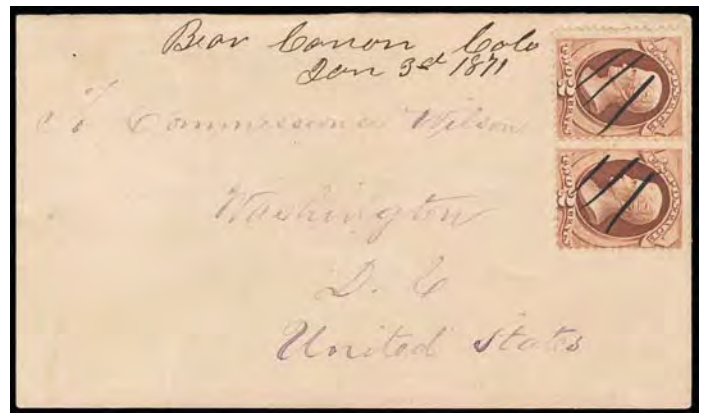 Bear Canon Colo
Jan 3rd 1871
c/o Commissioner Wilson
Washington
D. C
United States